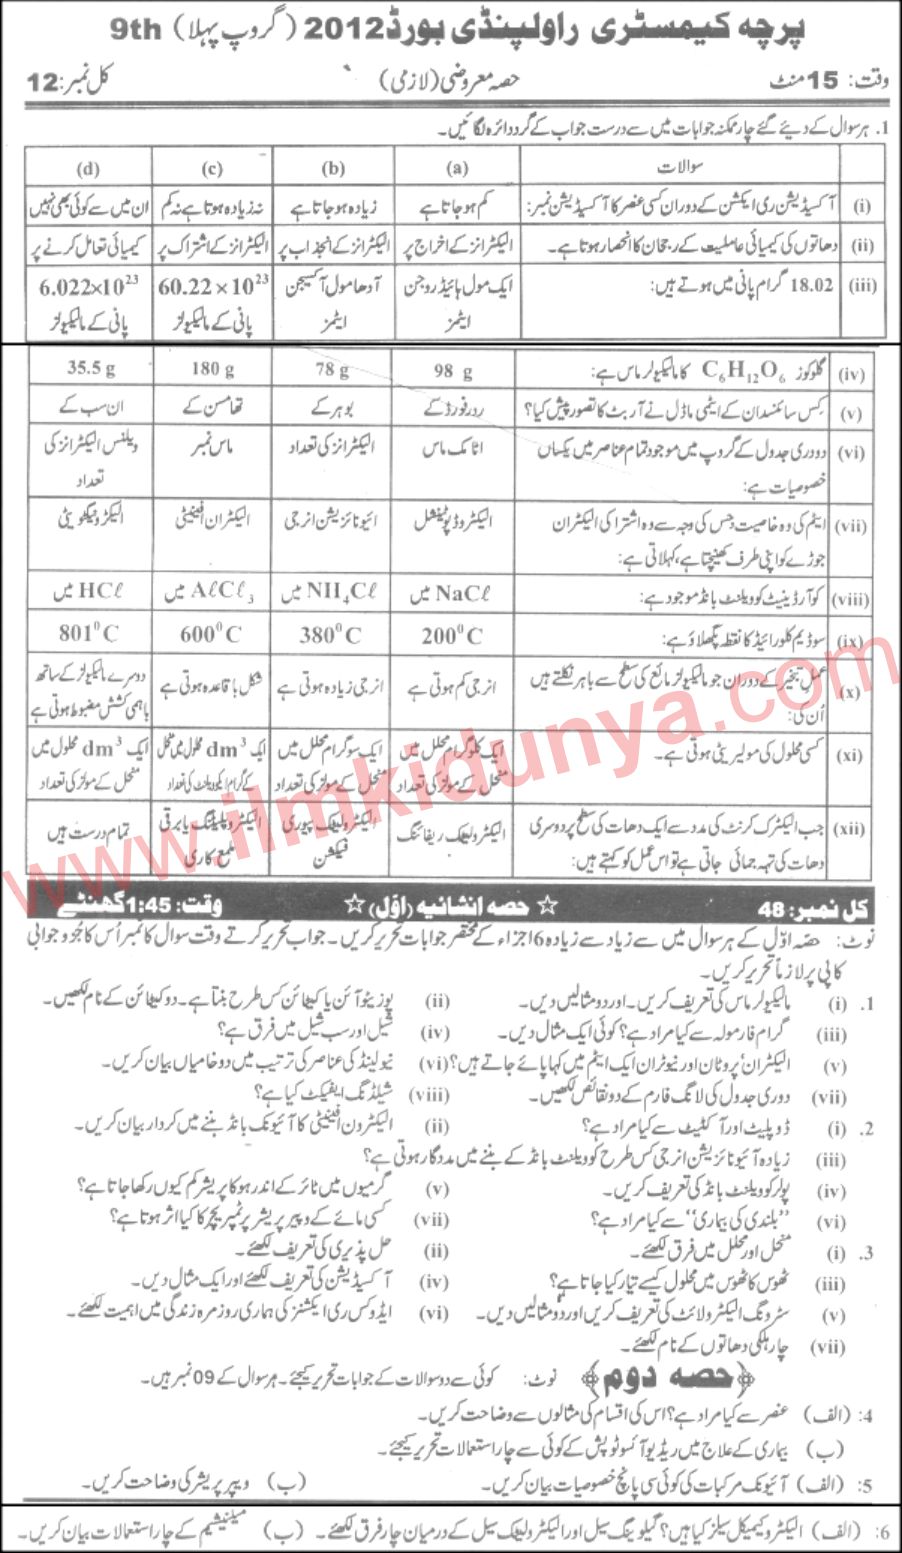 پرچہ کیمسٹری راولپنڈی بورڈ 2012 (گروپ پہلا) 9th
وقت: 15 منٹ حصہ معروضی (لازمی) کل نمبر: 12
1. ہر سوال کے دیئے گئے چار ممکنہ جوابات میں سے درست جواب کے گرد دائرہ لگائیں۔
سوالات (a) (b) (c) (d)
(i) آکسیڈیشن ری ایکشن کے دوران کسی عنصر کا آکسیڈیشن نمبر: کم ہو جاتا ہے زیادہ ہو جاتا ہے نہ زیادہ ہوتا ہے نہ کم ان میں سے کوئی بھی نہیں
(ii) دھاتوں کی کیمیائی عاملیت کے رجحان کا انحصار ہوتا ہے۔ الیکٹرانز کے اخراج پر الیکٹرانز کے انجذاب پر الیکٹرانز کے اشتراک پر کیمیائی تعامل کرنے پر
(iii) 18.02 گرام پانی میں ہوتے ہیں: ایک مول ہائیڈروجن آدھا مول آکسیجن 60.22 × 10²³ 6.022×10²³
ایٹمز ایٹمز پانی کے مالیکیولز پانی کے مالیکیولز
(iv) گلوکوز C₆H₁₂O₆ کا مالیکیولر ماس ہے: 98 g 78 g 180 g 35.5 g
(v) کس سائنسدان کے ایٹمی ماڈل نے آربٹ کا تصور پیش کیا؟ ردرفورڈ کے بوہر کے تھامسن کے ان سب کے
(vi) دوری جدول کے گروپ میں موجود تمام عناصر میں یکساں اٹامک ماس الیکٹرانز کی تعداد ماس نمبر ویلنس الیکٹرانز کی
خصوصیات ہے: تعداد
(vii) ایٹم کی وہ خاصیت جس کی وجہ سے وہ اشتراکی الیکٹران الیکٹروڈ پوٹینشل آئیونائزیشن انرجی الیکٹران افینیٹی الیکٹرونیگٹویٹی
جوڑے کو اپنی طرف کھینچتا ہے، کہلاتی ہے:
(viii) کوآرڈینیٹ کوویلنٹ بانڈ موجود ہے: NaCℓ میں NH₄Cℓ میں AℓCℓ₃ میں HCℓ میں
(ix) سوڈیم کلورائیڈ کا نقطہ پگھلاؤ ہے: 200⁰C 380⁰C 600⁰C 801⁰C
(x) عمل تبخیر کے دوران جو مالیکیولز مائع کی سطح سے باہر نکلتے ہیں انرجی کم ہوتی ہے انرجی زیادہ ہوتی ہے شکل باقاعدہ ہوتی ہے دوسرے مالیکیولز کے ساتھ
اُن کی: باہمی کشش مضبوط ہوتی ہے
(xi) کسی محلول کی مولیریٹی ہوتی ہے۔ ایک کلوگرام محلل میں ایک سوگرام محلل میں ایک dm³ محلول میں منحل ایک dm³ محلول میں
منحل کے مولز کی تعداد منحل کے مولز کی تعداد کے گرام ایکوویلنٹ کی تعداد منحل کے مولز کی تعداد
(xii) جب الیکٹرک کرنٹ کی مدد سے ایک دھات کی سطح پر دوسری الیکٹرولیٹک ریفائننگ الیکٹرولیٹک پیوری الیکٹروپلیٹنگ یا برقی تمام درست ہیں
دھات کی تہہ جمائی جاتی ہے تو اس عمل کو کہتے ہیں: فیکشن ملمع کاری
کل نمبر: 48 ☆ حصہ انشائیہ (اوّل) ☆ وقت: 1:45 گھنٹے
نوٹ: حصہ اوّل کے ہر سوال میں سے زیادہ سے زیادہ 6 اجزاء کے مختصر جوابات تحریر کریں۔ جواب تحریر کرتے وقت سوال کا نمبر اُس کا جُز و جوابی
کاپی پر لازماً تحریر کریں۔
1. (i) مالیکیولر ماس کی تعریف کریں۔ اور دو مثالیں دیں۔ (ii) پوزیٹو آئن یا کیٹائن کس طرح بنتا ہے۔ دو کیٹائن کے نام لکھیں۔
(iii) گرام فارمولہ سے کیا مراد ہے؟ کوئی ایک مثال دیں۔ (iv) شیل اور سب شیل میں فرق ہے؟
(v) الیکٹران، پروٹان اور نیوٹران ایک ایٹم میں کہاپائے جاتے ہیں؟ (vi) نیولینڈ کی عناصر کی ترتیب میں دو خامیاں بیان کریں۔
(vii) دوری جدول کی لانگ فارم کے دو نقائص لکھیں۔ (viii) شیلڈنگ ایفیکٹ کیا ہے؟
2. (i) ڈوپلیٹ اور آکٹیٹ سے کیا مراد ہے؟ (ii) الیکٹرون افینیٹی کا آئیونک بانڈ بننے میں کردار بیان کریں۔
(iii) زیادہ آئیونائزیشن انرجی کس طرح کوویلنٹ بانڈ کے بننے میں مددگار ہوتی ہے؟
(iv) پولر کوویلنٹ بانڈ کی تعریف کریں۔ (v) گرمیوں میں ٹائر کے اندر ہوا کا پریشر کم کیوں رکھا جاتا ہے؟
(vi) ”بلندی کی بیماری“ سے کیا مراد ہے؟ (vii) کسی مائع کے ویپر پریشر پر ٹمپریچر کا کیا اثر ہوتا ہے؟
3. (i) منحل اور محلل میں فرق لکھئے۔ (ii) حل پذیری کی تعریف لکھئے۔
(iii) ٹھوس کا ٹھوس میں محلول کیسے تیار کیا جاتا ہے؟ (iv) آکسیڈیشن کی تعریف لکھئے اور ایک مثال دیں۔
(v) سٹرونگ الیکٹرولائٹ کی تعریف کریں اور دو مثالیں دیں۔ (vi) ریڈوکس ری ایکشنز کی ہماری روزمرہ زندگی میں اہمیت لکھئے۔
(vii) چار ہلکی دھاتوں کے نام لکھئے۔
حصہ دوم نوٹ: کوئی سے دو سوالات کے جوابات تحریر کیجئے۔ ہر سوال کے 09 نمبر ہیں۔
4: (الف) عنصر سے کیا مراد ہے؟ اس کی اقسام کی مثالوں سے وضاحت کریں۔
(ب) بیماری کے علاج میں ریڈیو آئسوٹوپس کے کوئی سے چار استعمالات تحریر کیجئے۔
5: (الف) آئیونک مرکبات کی کوئی سی پانچ خصوصیات بیان کریں۔ (ب) ویپر پریشر کی وضاحت کریں۔
6: (الف) الیکٹروکیمیکل سیلز کیا ہیں؟ گیلوینک سیل اور الیکٹرولیٹک سیل کے درمیان چار فرق لکھئے۔ (ب) میگنیشیم کے چار استعمالات بیان کریں۔
www.ilmkidunya.com